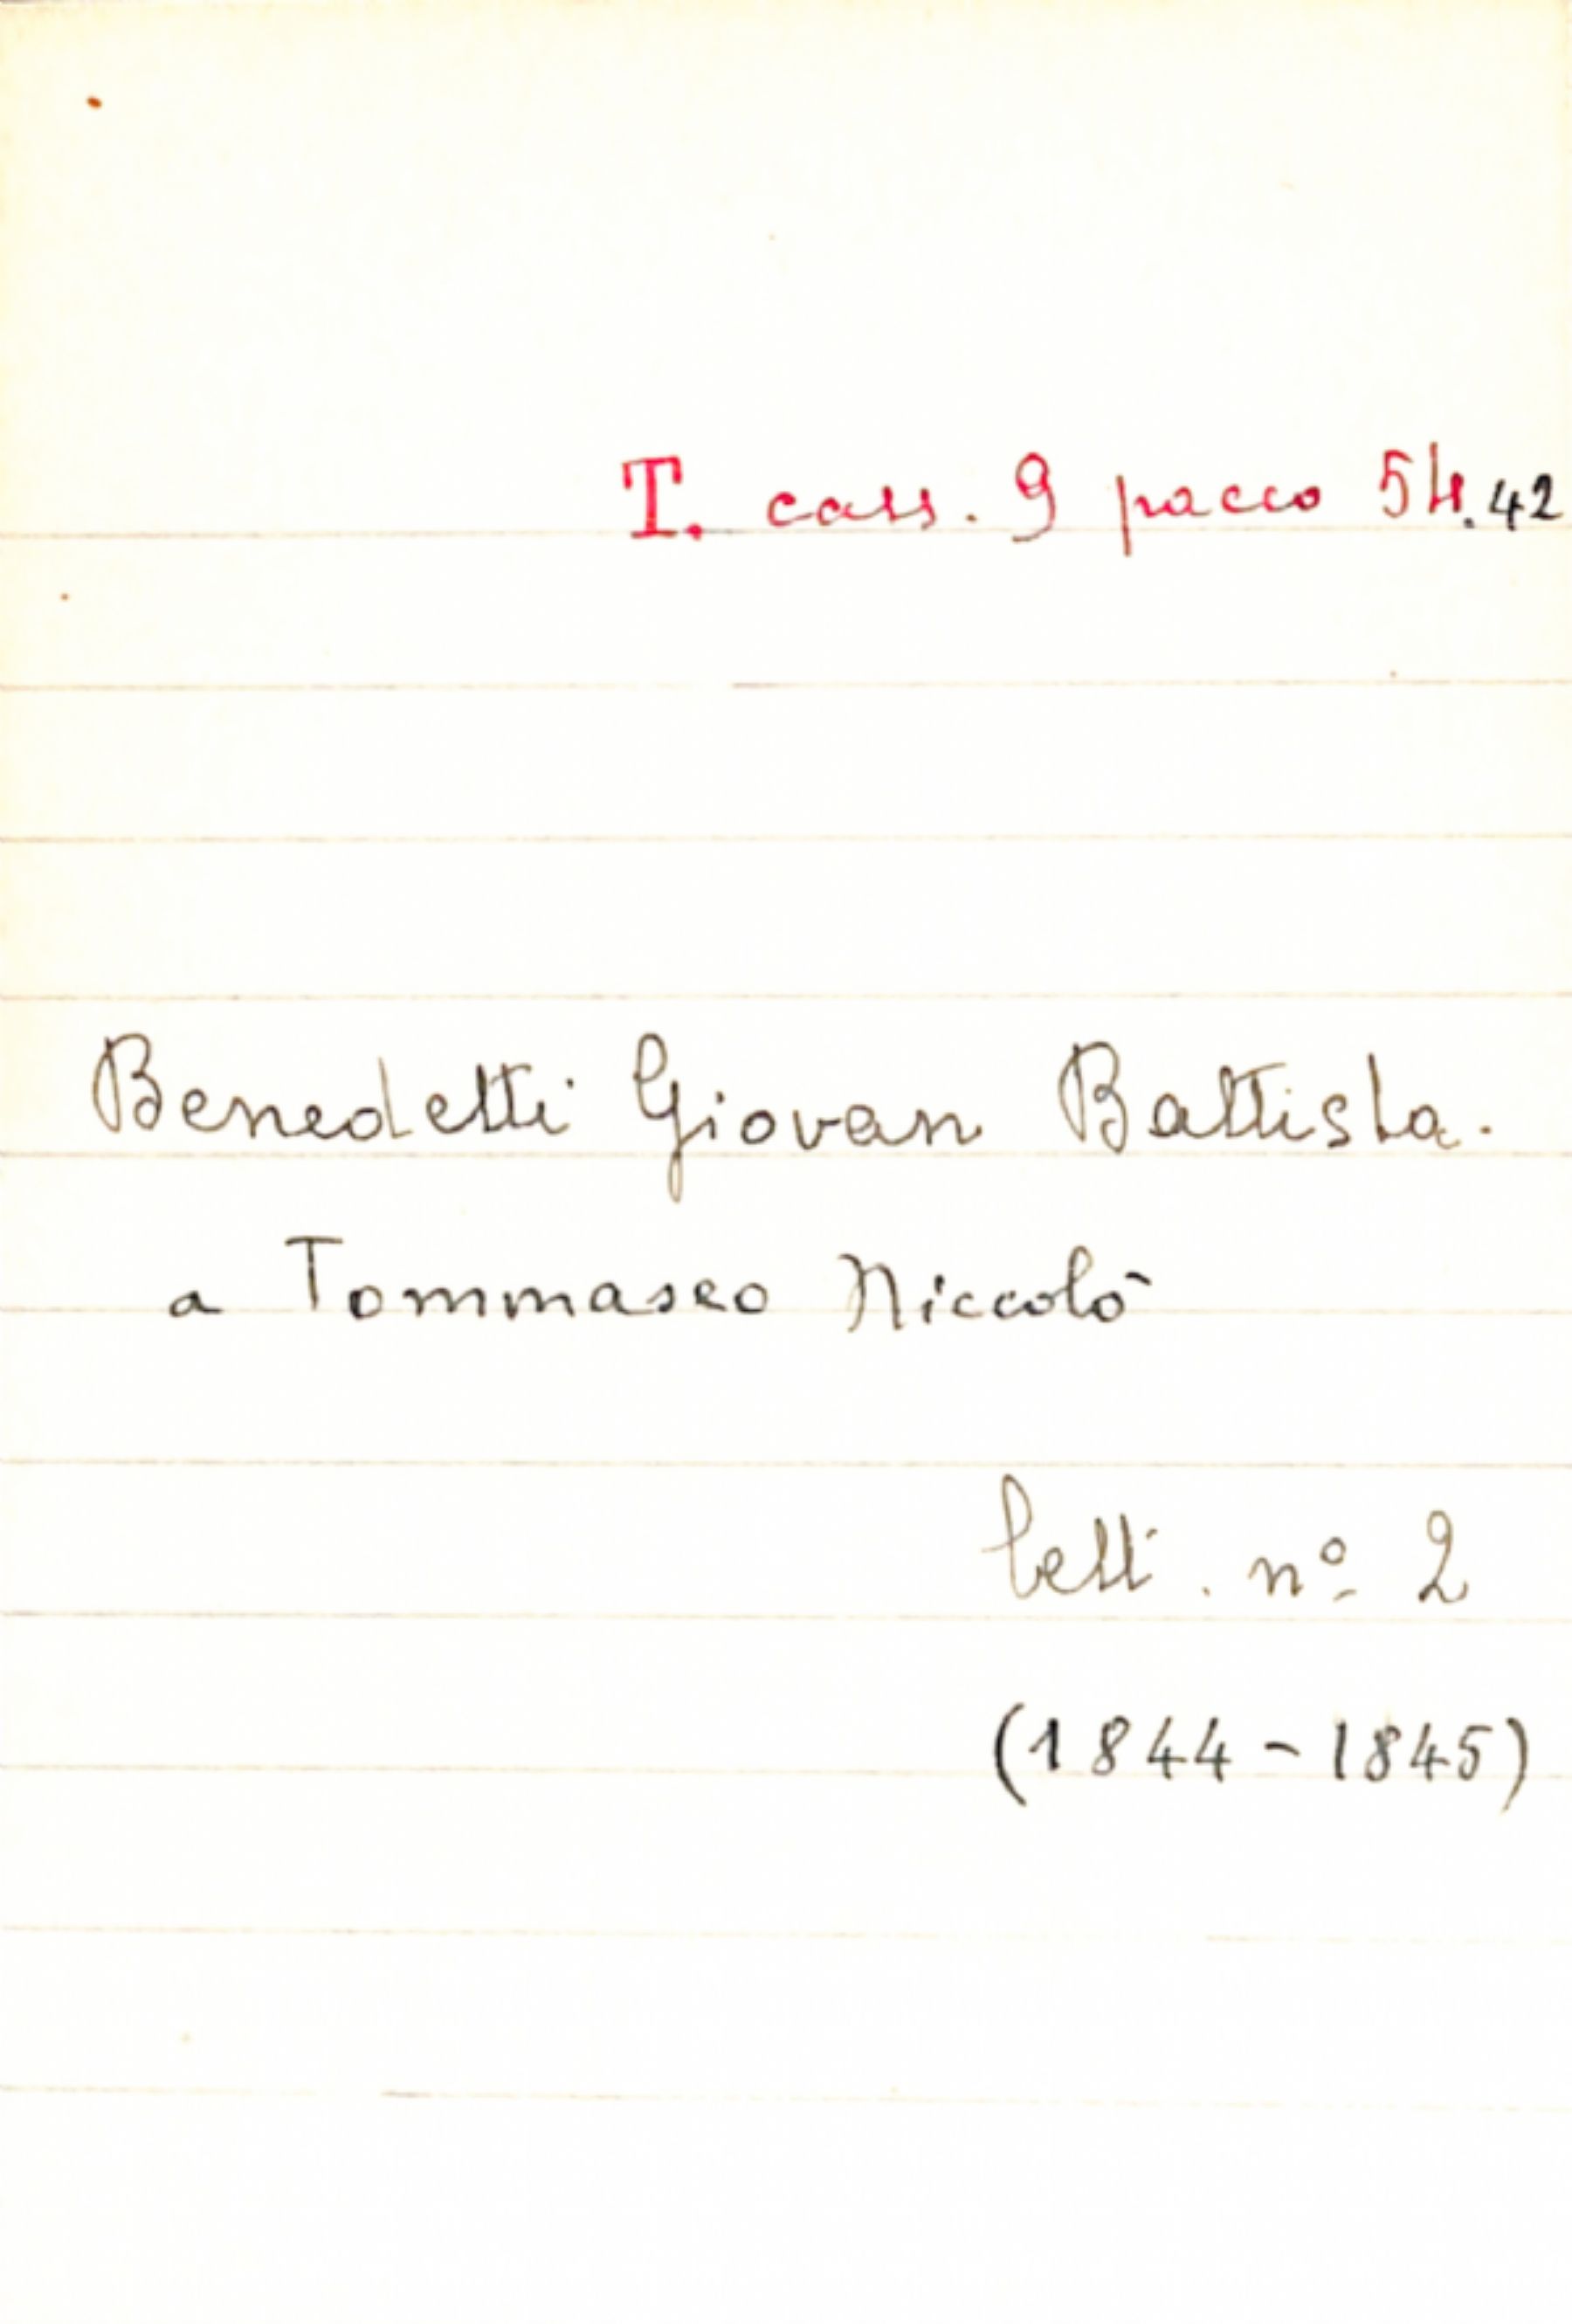 T. cass. 9 pacco 54.42
Benedetti Giovan Battista.
a Tommaseo Niccolò
lett. nº 2
(1844-1845)